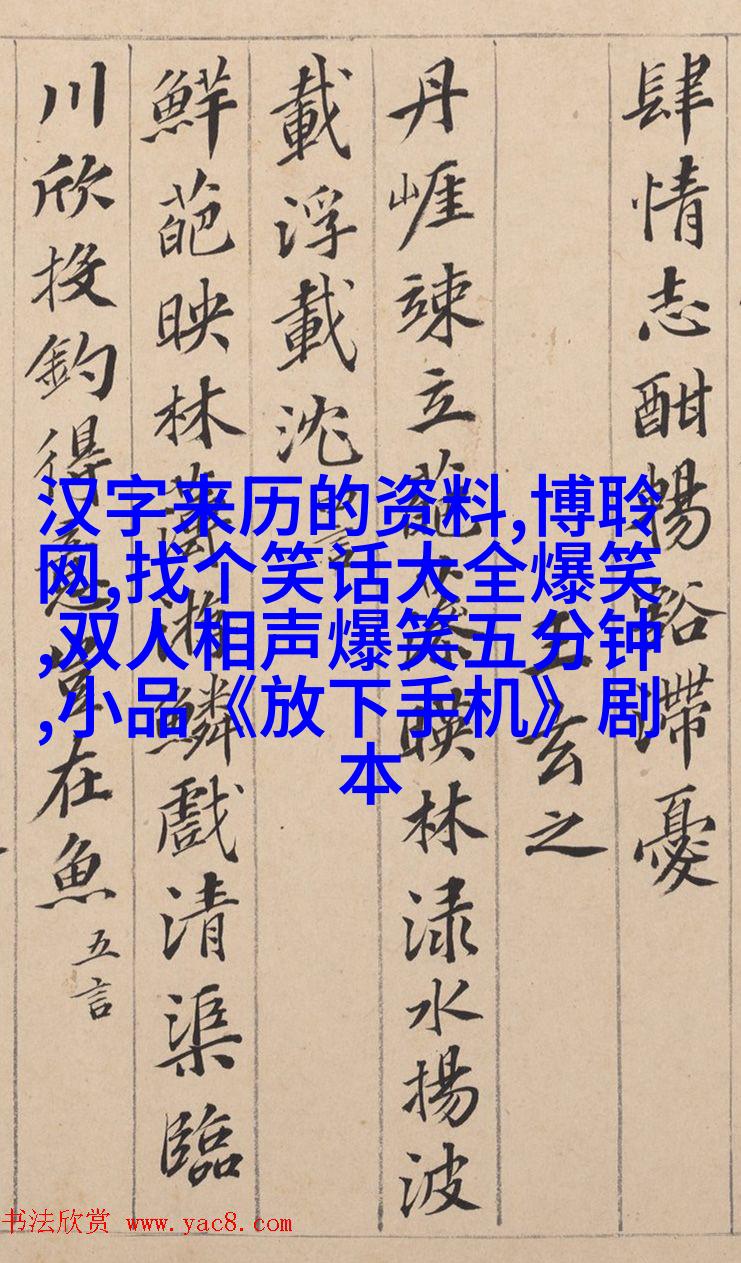 肆情志酣暢豁滯憂
王玄之
丹崖竦立葩藻暎林渌水揚波
載浮載沈 四言
鮮葩映林薄游鱗戲清渠臨
川欣投釣得意豈在魚 五言
汉字来历的资料,博聆
网,找个笑话大全爆笑
,双人相声爆笑五分钟
,小品《放下手机》剧
本
书法欣赏 www.yac8.com